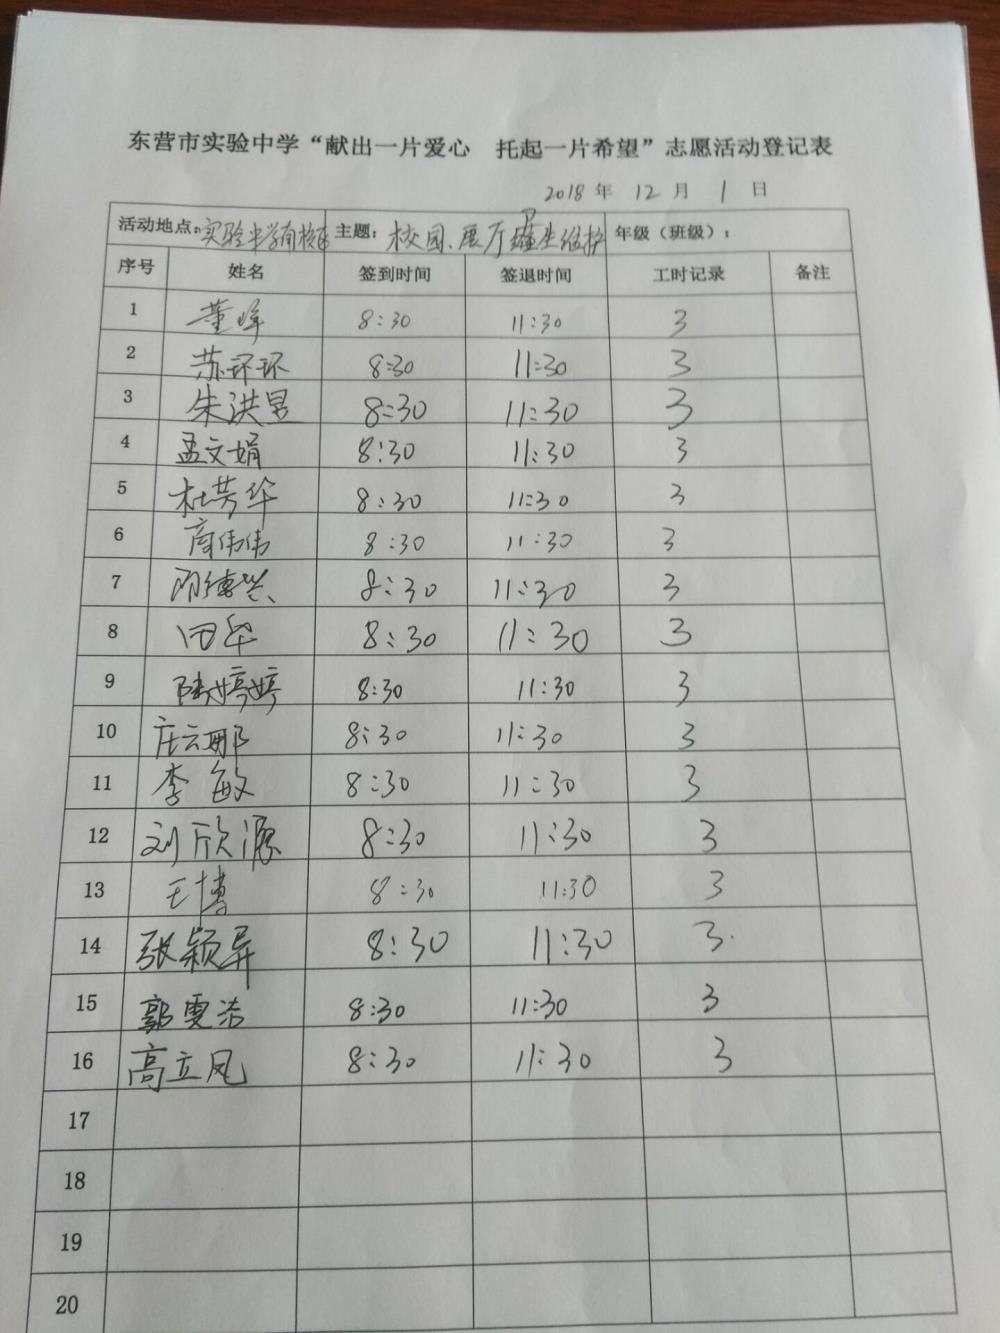 东营市实验中学“献出一片爱心 托起一片希望”志愿活动登记表
2018年 12月 1日
活动地点:实验中学南校区 主题:校园、展厅卫生维护 年级(班级):
序号 姓名 签到时间 签退时间 工时记录 备注
1 董峰 8:30 11:30 3
2 苏环环 8:30 11:30 3
3 朱洪昱 8:30 11:30 3
4 孟文娟 8:30 11:30 3
5 杜芳华 8:30 11:30 3
6 商伟伟 8:30 11:30 3
7 8:30 11:30 3
8 田华 8:30 11:30 3
9 陆婷婷 8:30 11:30 3
10 庄云娜 8:30 11:30 3
11 李敏 8:30 11:30 3
12 刘欣源 8:30 11:30 3
13 王博 8:30 11:30 3
14 张颖异 8:30 11:30 3
15 郭雯洁 8:30 11:30 3
16 高立凤 8:30 11:30 3
17
18
19
20